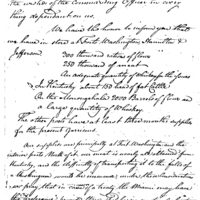 the orders of the Commanding Officer in every
thing dependant on us.
We have the honor to inform you that
we have in store at Fort Washington, Hamilton &
Jefferson
300 thousand rations of flour
250 thousand of meat on
An adequate quantity of Whiskey for the flour
In Kentucky about 150 head of fat Cattle
On the Monongahela 2000 Barrels of flour and
a large quantity of Whiskey.
The other posts have at least three months supplies
for the present Garrisons.
Our supplies are principally at Fort Washington and the
interior posts. Most of our meat is nearly
Kentucky, and the difficulty of transporting it to the falls of
Muskingum would be immense; under these
we pray, that in case of a treaty the Miami may have
the preference